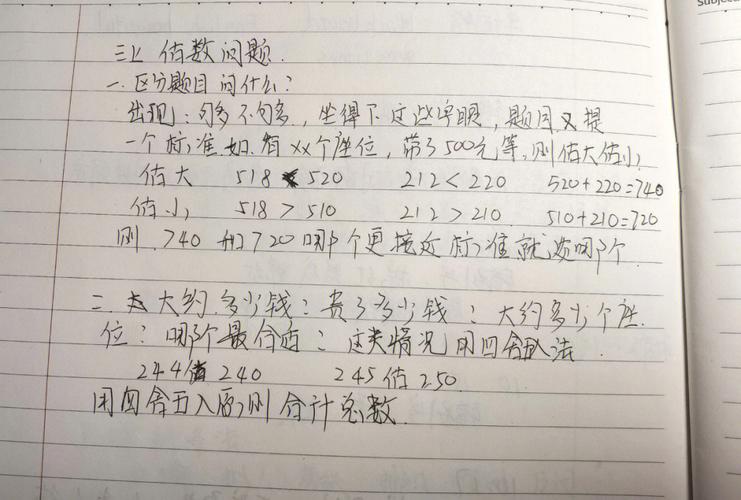 三上 估数问题.
一. 区分题目问什么?
出现: 句多不句多, 坐得下这些字眼, 题目又提
一个标准. 如. 有xx个座位, 带了500元等. 则估大估小
估大 518 < 520 212 < 220 520+220=740
估小 518 > 510 212 > 210 510+210=720
则. 740 和720哪个更接近标准就选哪个
二. 大约多少钱: 贵了多少钱: 大约多少个座.
位: 哪个最合适: 这类情况用四舍五入法.
244估240 245估250.
用四舍五入原则合计总数.